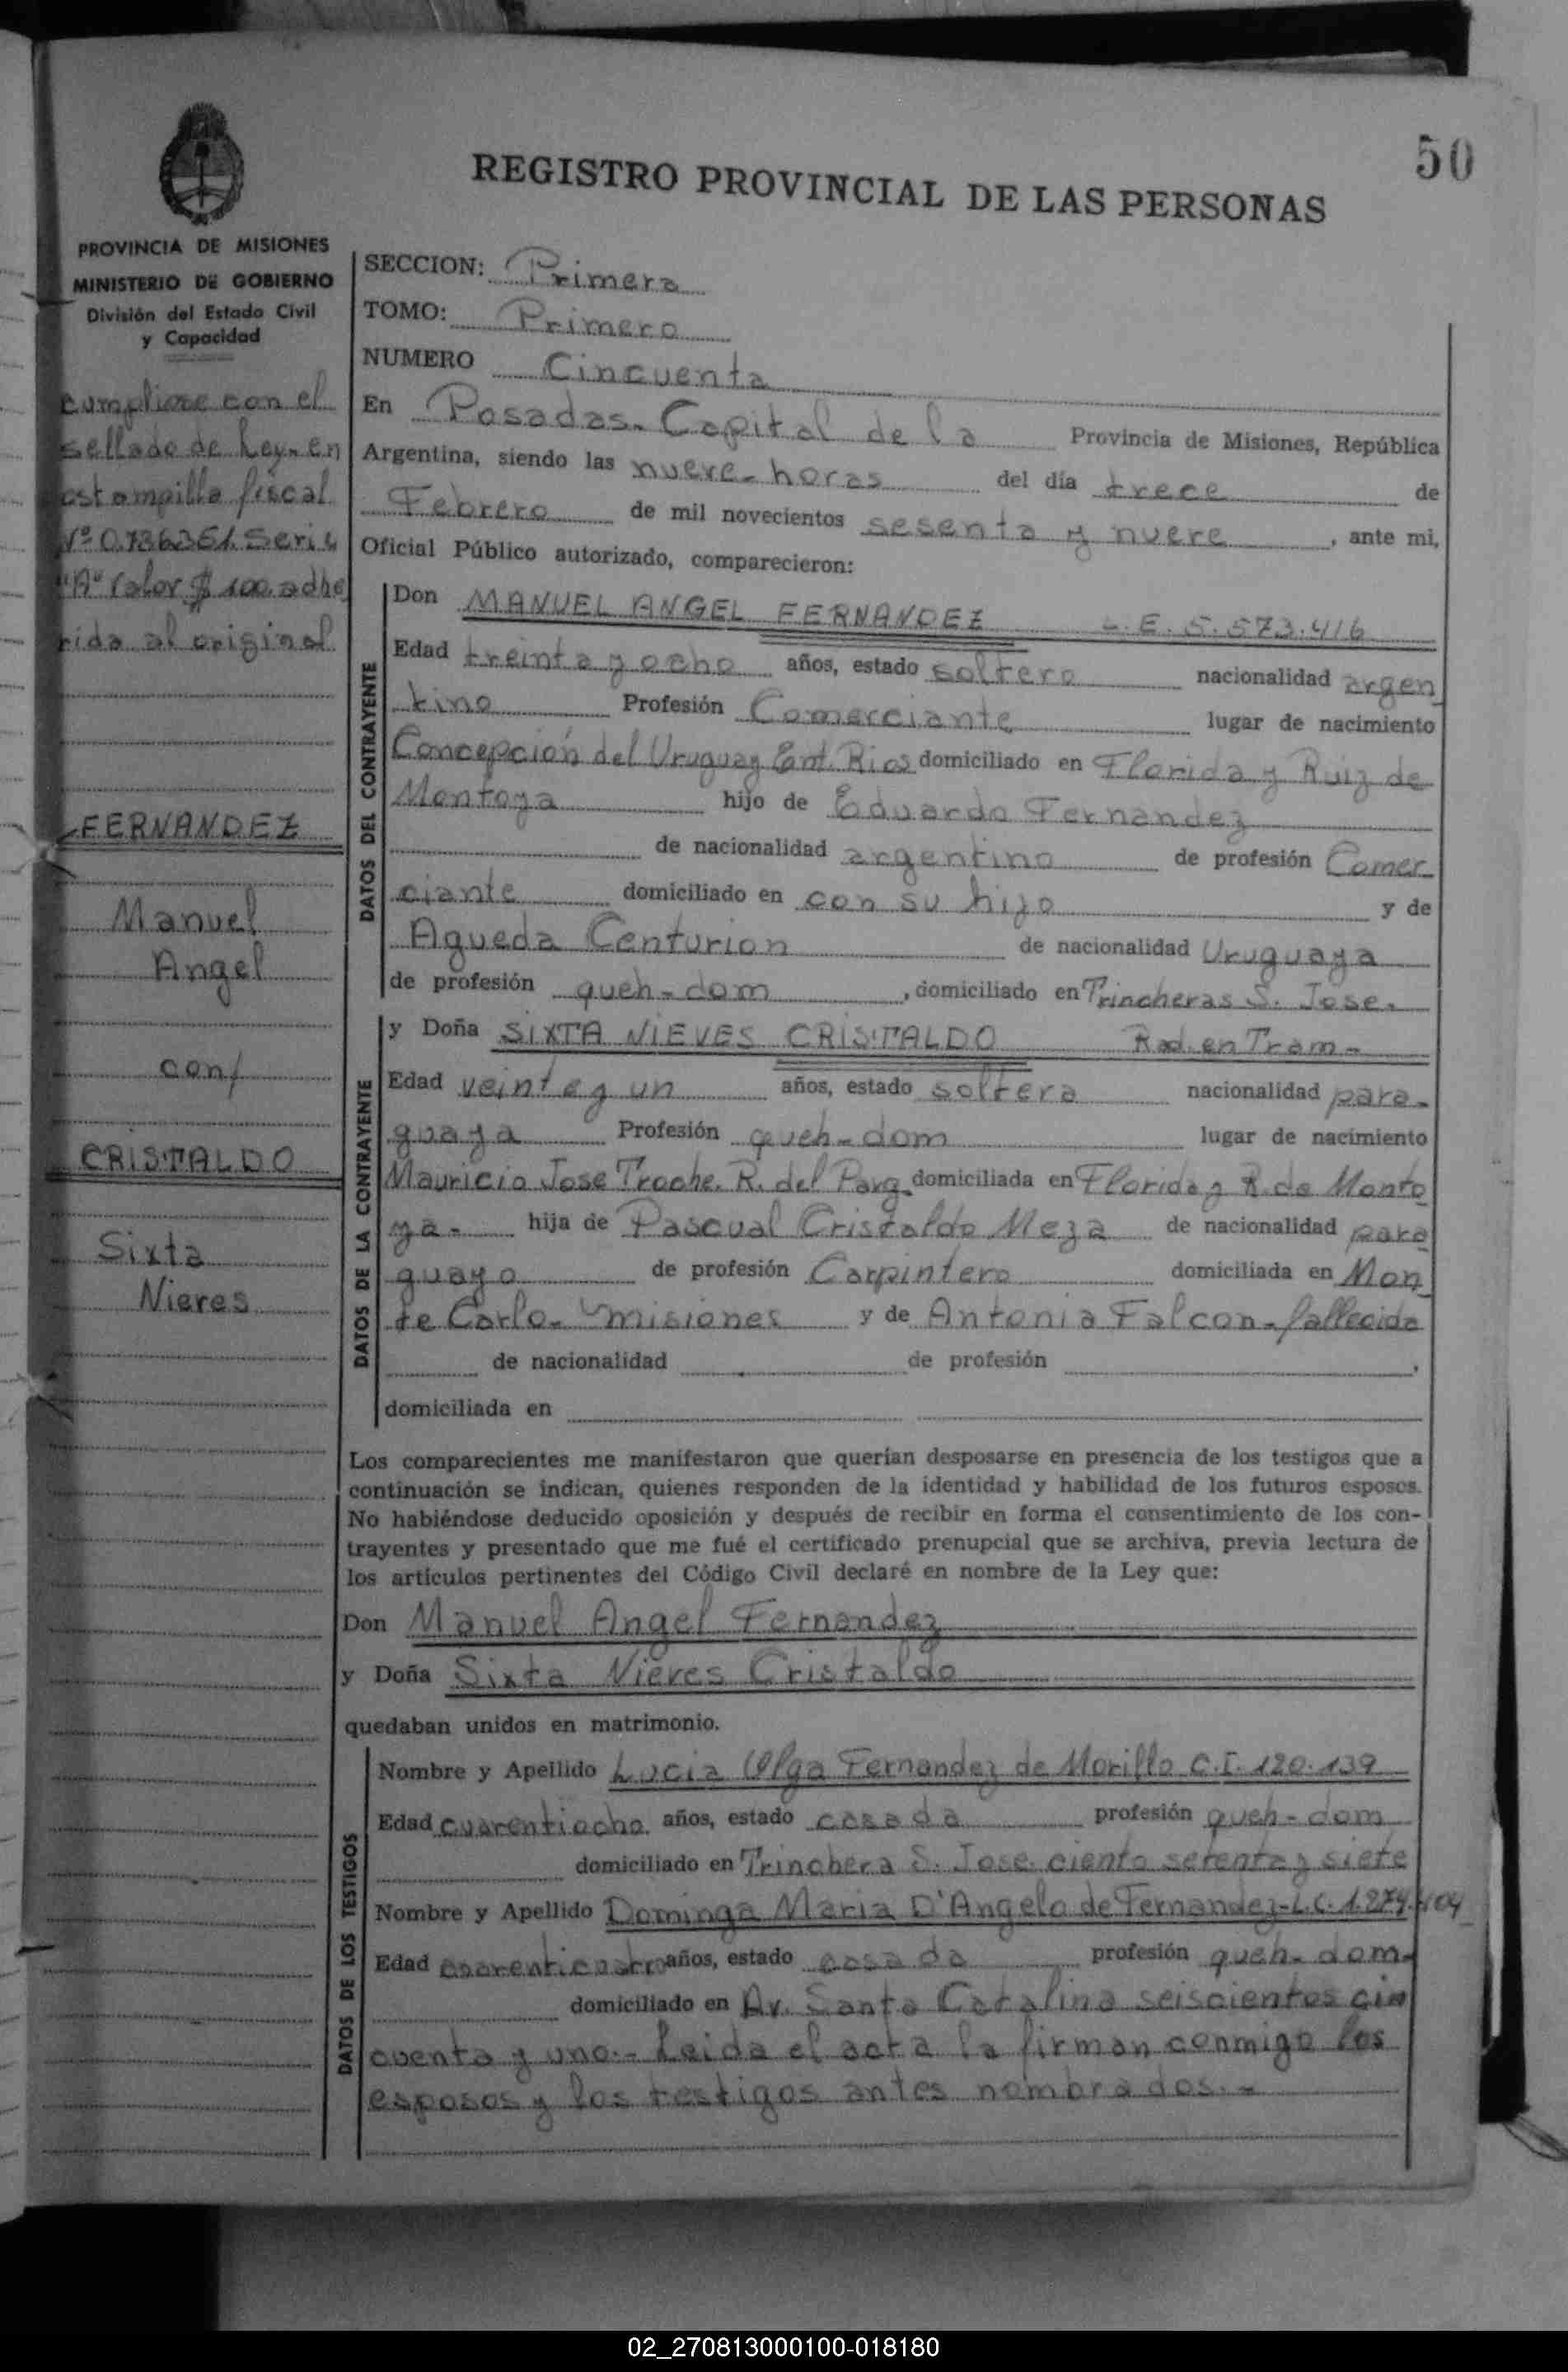 50
REGISTRO PROVINCIAL DE LAS PERSONAS
PROVINCIA DE MISIONES
MINISTERIO DE GOBIERNO
División del Estado Civil
y Capacidad
cumpliose con el
sellado de Ley- en
estampilla fiscal
Nº 0.736361. Serie
"A" Valor $ 100. adhe
rida al original
FERNANDEZ
Manuel
Angel
con/
CRISTALDO
Sixta
Nieves
SECCION: Primera
TOMO: Primero
NUMERO Cincuenta
En Posadas. Capital de la Provincia de Misiones, República
Argentina, siendo las nueve- horas del día trece de
Febrero de mil novecientos sesenta y nueve, ante mi,
Oficial Público autorizado, comparecieron:
DATOS DEL CONTRAYENTE
Don MANUEL ANGEL FERNANDEZ L.E. 5.573.416
Edad treinta y ocho años, estado soltero nacionalidad argen
tino Profesión Comerciante lugar de nacimiento
Concepción del Uruguay Ent. Rios domiciliado en Florida y Ruiz de
Montoya hijo de Eduardo Fernandez
de nacionalidad argentino de profesión Comer
ciante domiciliado en con su hijo y de
Agueda Centurion de nacionalidad Uruguaya
de profesión queh-dom, domiciliado en Trincheras S. Jose.
DATOS DE LA CONTRAYENTE
y Doña SIXTA NIEVES CRISTALDO Rad. en Tram-
Edad veinte y un años, estado soltera nacionalidad para-
guaya Profesión queh-dom lugar de nacimiento
Mauricio Jose Troche. R. del Parg. domiciliada en Florida y R. de Monto
ya- hija de Pascual Cristaldo Meza de nacionalidad para
guayo de profesión Carpintero domiciliada en Mon
te Carlo- Misiones y de Antonia Falcon- fallecida
de nacionalidad de profesión ,
domiciliada en
Los comparecientes me manifestaron que querían desposarse en presencia de los testigos que a
continuación se indican, quienes responden de la identidad y habilidad de los futuros esposos.
No habiéndose deducido oposición y después de recibir en forma el consentimiento de los con-
trayentes y presentado que me fué el certificado prenupcial que se archiva, previa lectura de
los artículos pertinentes del Código Civil declaré en nombre de la Ley que:
Don Manuel Angel Fernandez
y Doña Sixta Nieves Cristaldo
quedaban unidos en matrimonio.
DATOS DE LOS TESTIGOS
Nombre y Apellido Lucia Olga Fernandez de Morillo C.I. 120.139
Edad cuarentiocho años, estado casada profesión queh-dom
domiciliado en Trinchera S. Jose ciento setenta y siete
Nombre y Apellido Dominga Maria D'Angelo de Fernandez- L.C. 1.274.404
Edad cuarenticuatro años, estado casada profesión queh-dom-
domiciliado en Av. Santa Catalina seiscientos cin
cuenta y uno.- Leida el acta la firman conmigo los
esposos y los testigos antes nombrados.-
02_270813000100-018180